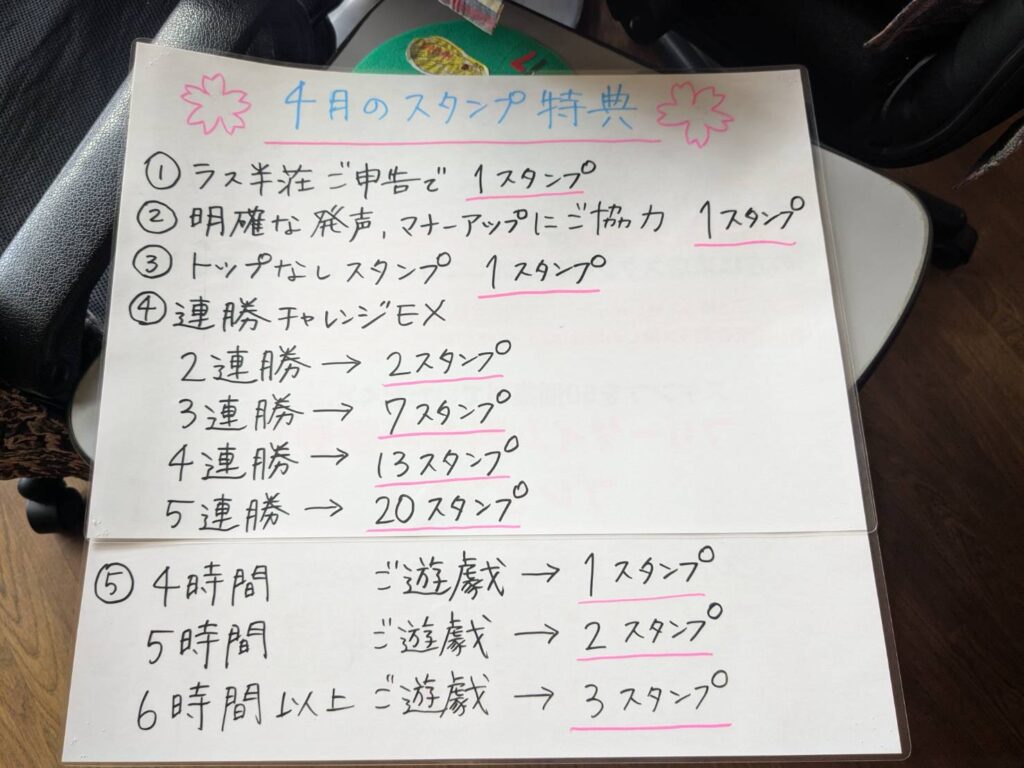 4月のスタンプ特典
① ラス半荘ご申告で 1スタンプ
② 明確な発声、マナーアップにご協力 1スタンプ
③ トップなしスタンプ 1スタンプ
④ 連勝チャレンジEX
2連勝→ 2スタンプ
3連勝→ 7スタンプ
4連勝→ 13スタンプ
5連勝→ 20スタンプ
⑤ 4時間 ご遊戯→ 1スタンプ
5時間 ご遊戯→ 2スタンプ
6時間以上 ご遊戯→ 3スタンプ